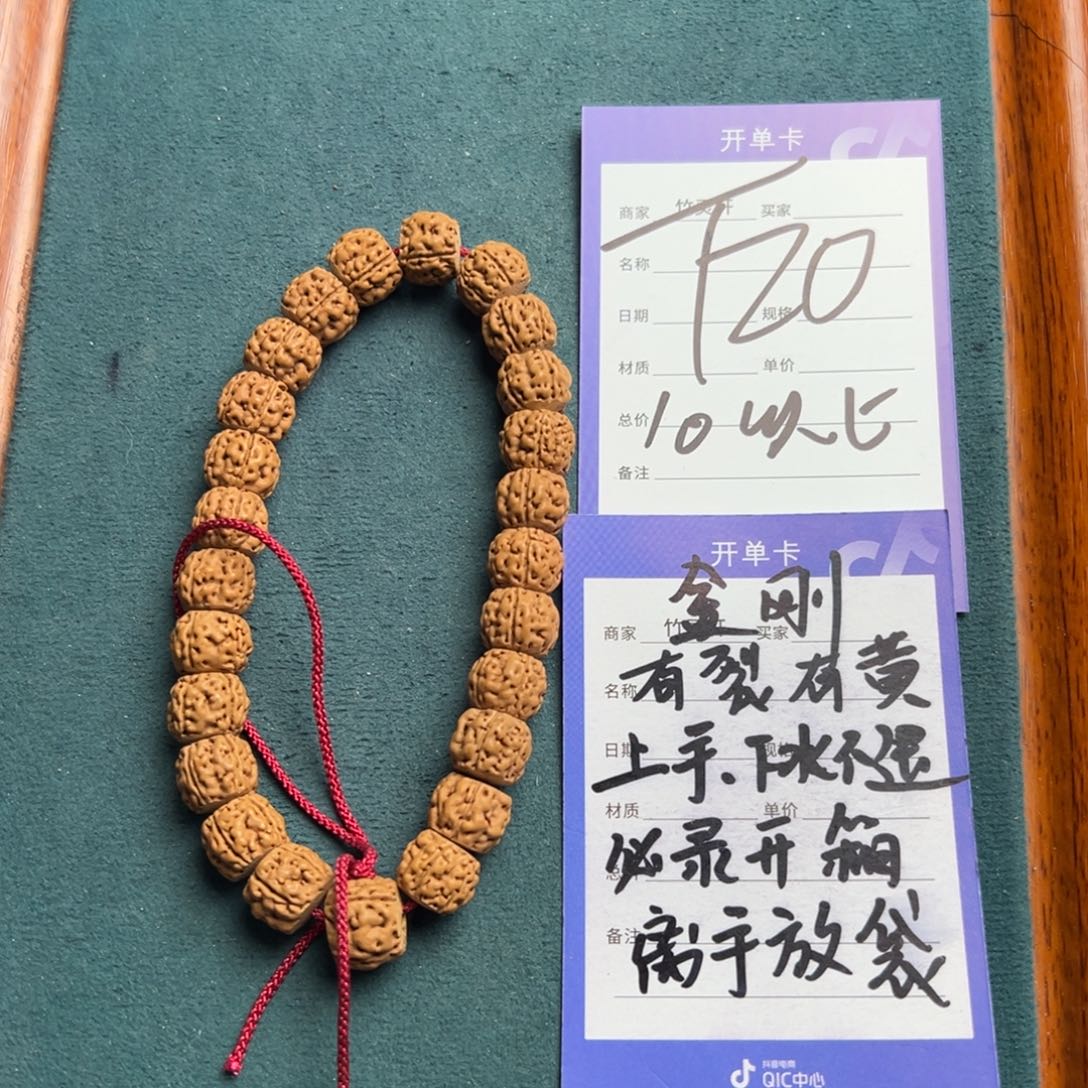 开单卡
商家 竹 轩 买家
名称
日期 规格
材质 单价
总价
备注
T20
10以上
开单卡
商家 竹 买家
名称
日期 规
材质 单价
备注
金刚
有裂有黄
上手、下水不退
必录开箱
离手放袋
抖音电商
QIC中心